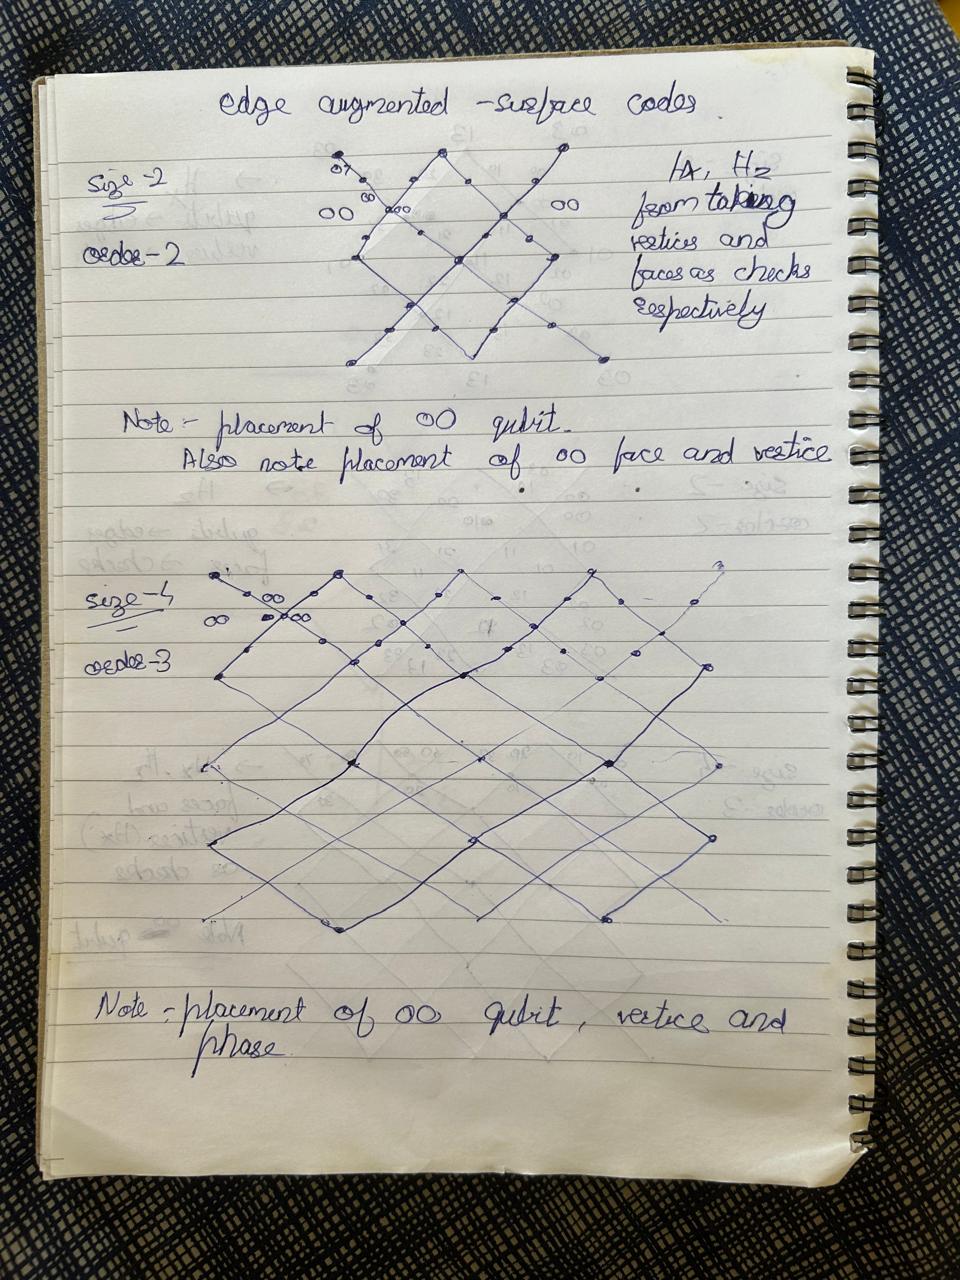 edge augmented - surface codes
size - 2
order - 2
07
00
00
00
00
Hx, Hz
from taking
vertices and
faces as checks
respectively
Note :- placement of 00 qubit.
Also note placement of 00 face and vertice
size - 4
order - 3
00
00
00
Note :- placement of 00 qubit, vertice and
phase